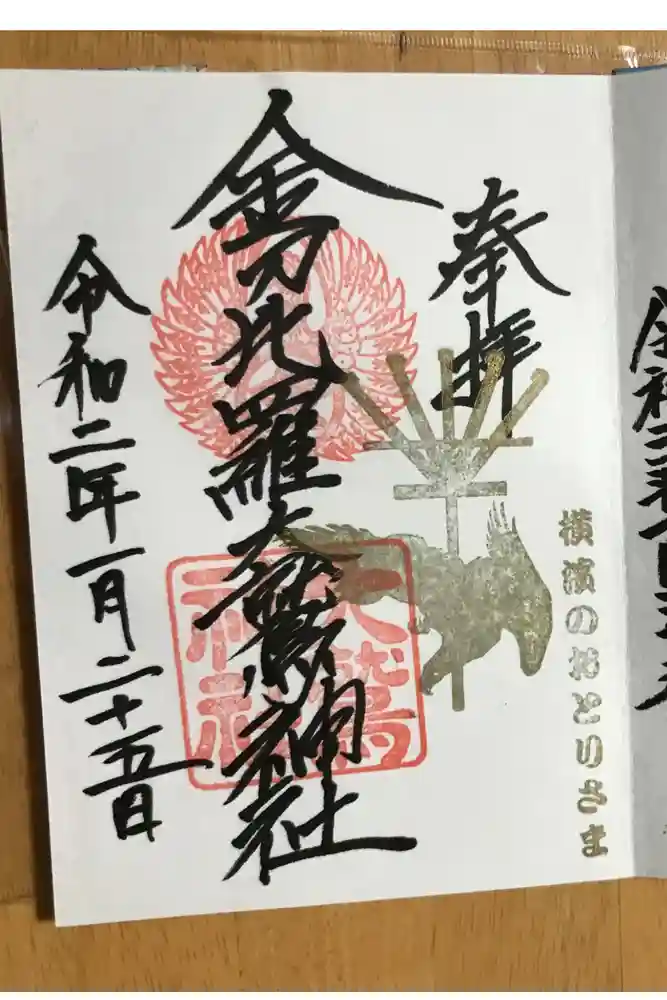 横濱のおとりさま
奉拝
金刀比羅大鷲神社
大鷲
神社
令和二年一月二十五日